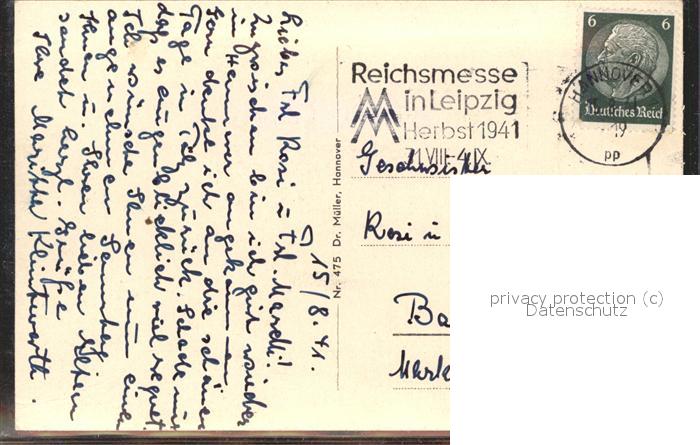 15/8.41.
Liebes Frl Rosi u Frl. Mardi!
Inzwischen bin ich gut wieder
in Hannover angekommen
Gern denke ich an die schönen
Tage in Tölz zurück. Schade nur
das es augenblicklich viel regnet.
Ich wünsche Ihnen nun einen
angenehmen Sonntag
Ihnen u. Ihren lieben Eltern
sendet herzl. Grüße
Ihre Maritta Klintwarth.
Nr. 475 Dr. Müller, Hannover
Reichsmesse
in Leipzig
Herbst 1941
31.VIII-4.IX.
6 6
Deutsches Reich
HANNOVER
19
pp
Geschwister
Rosi u
Ba
Mark
privacy protection (c)
Datenschutz